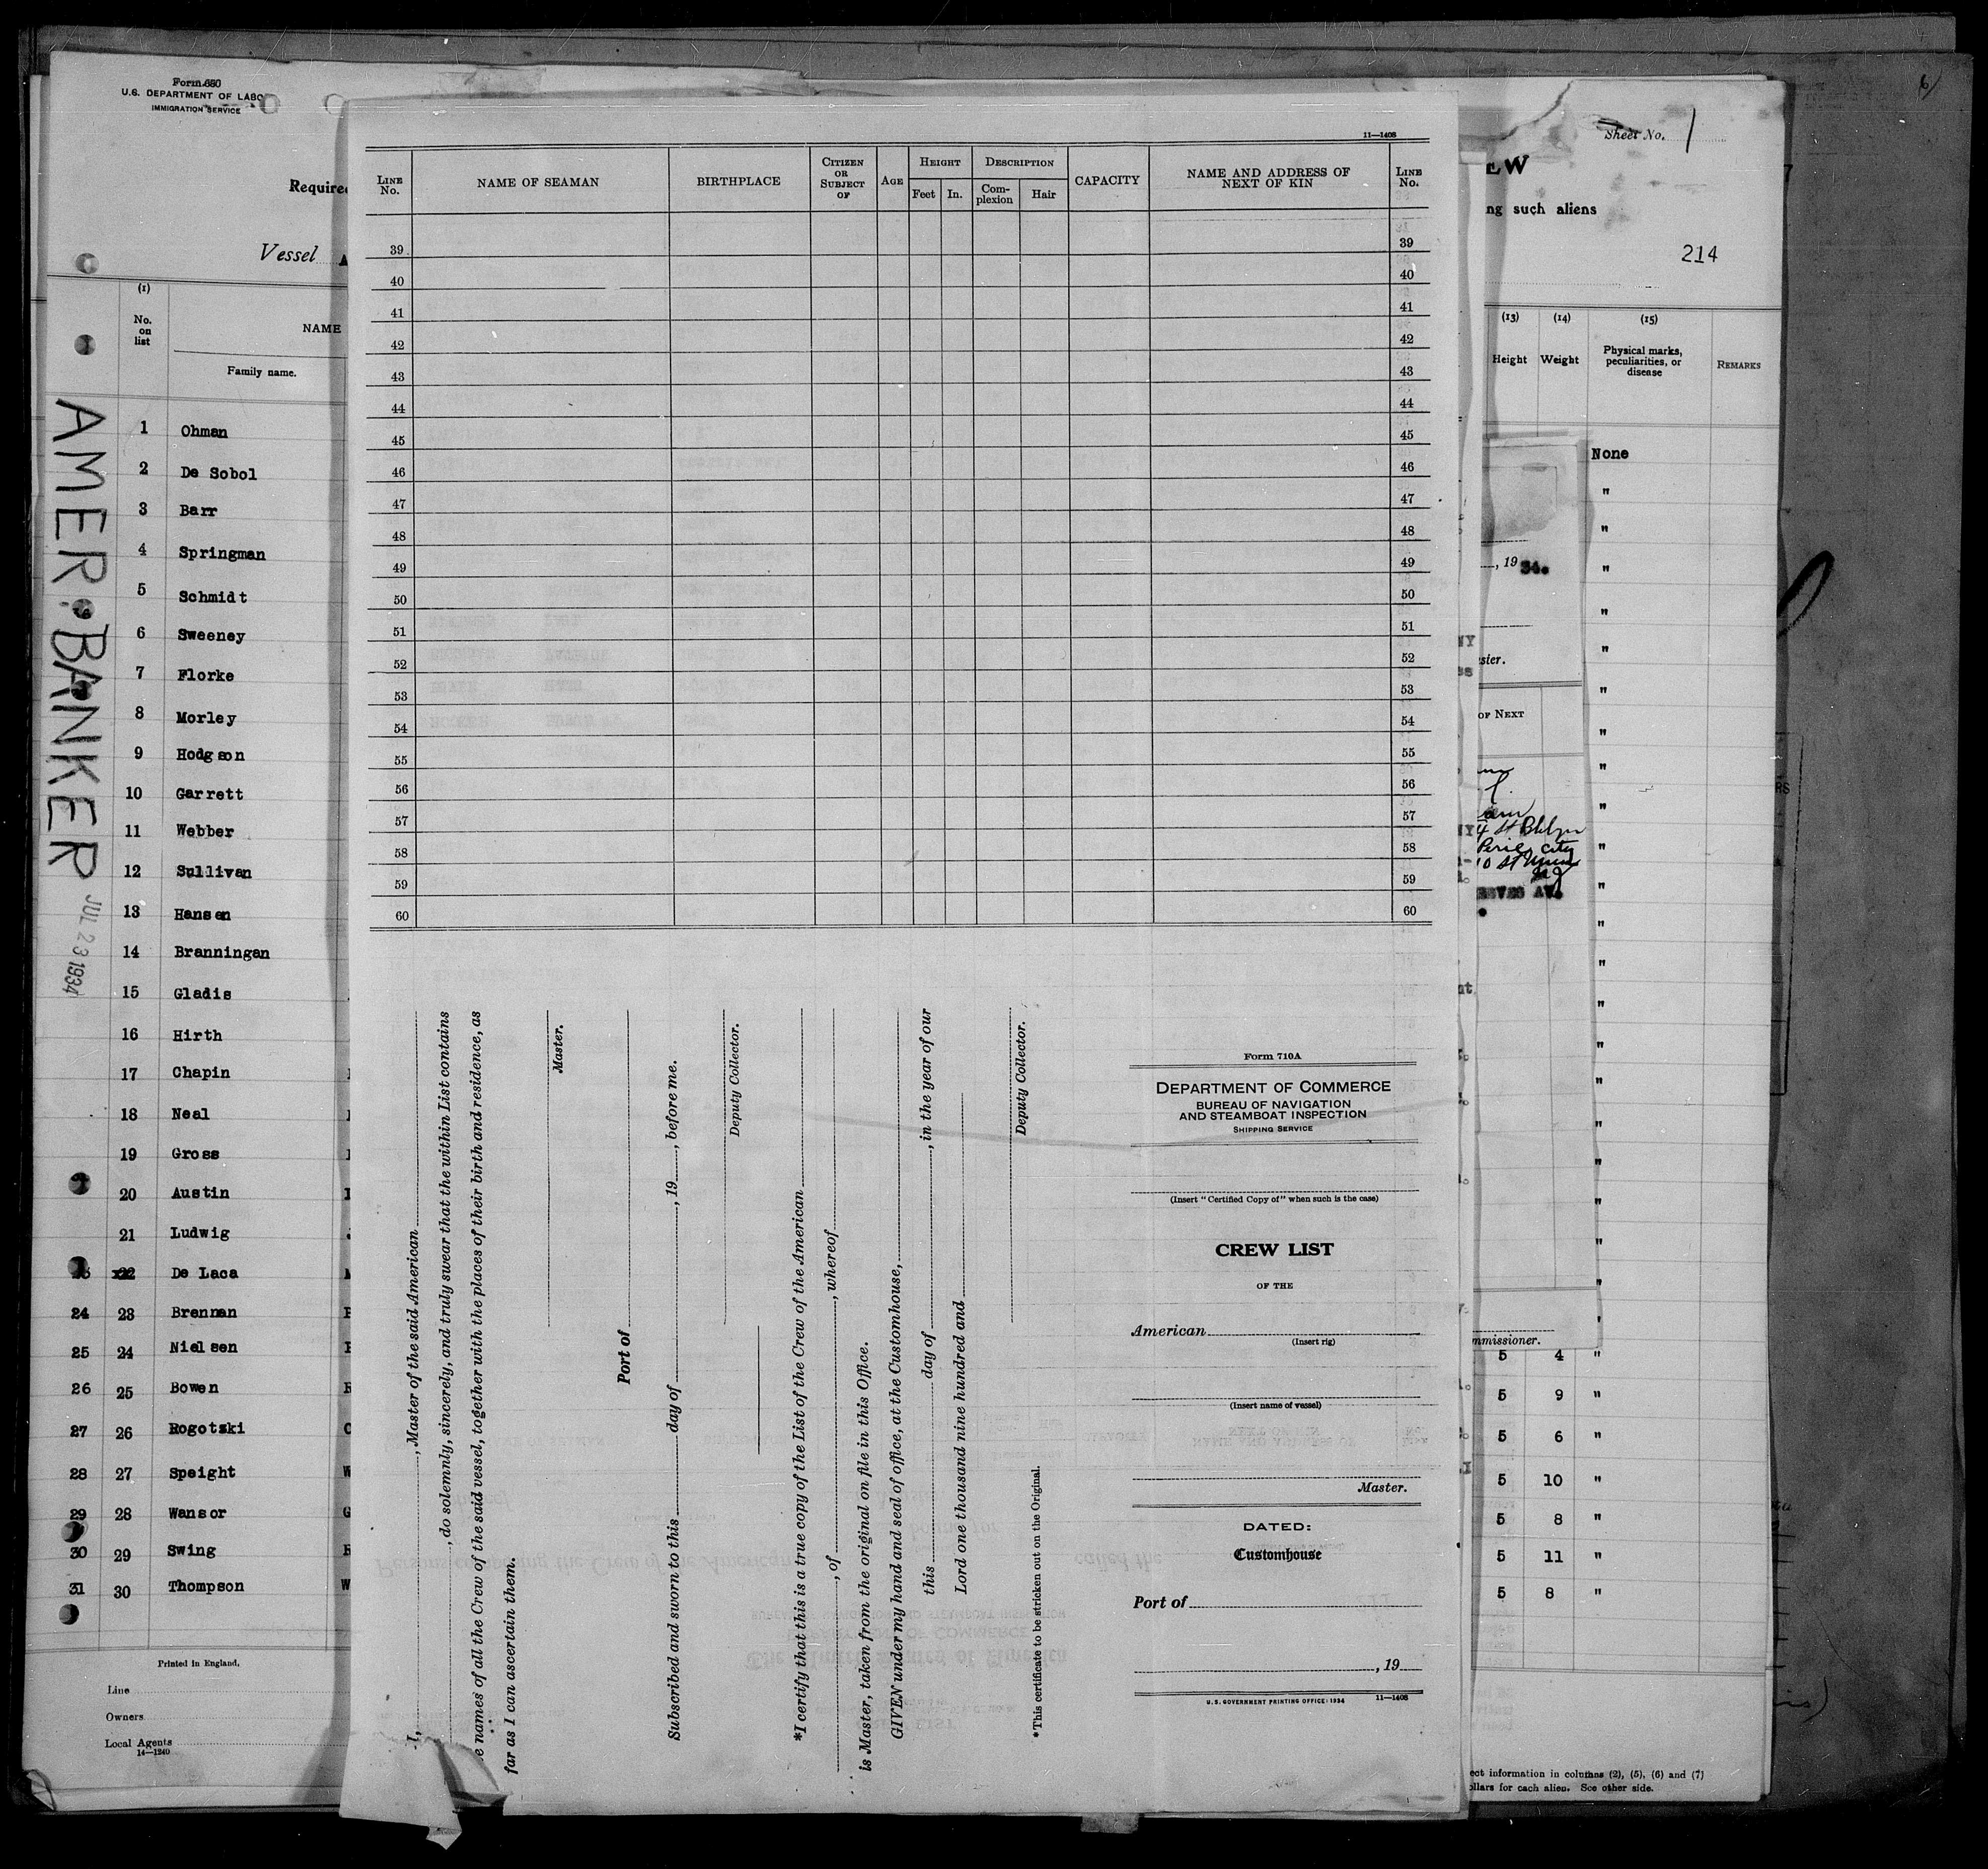 Form 680
U.S. DEPARTMENT OF LABO
IMMIGRATION SERVICE
Require
Vessel
(1)
No. on list
NAME
Family name.
AMER. BANKER
JUL 23 1934
1 Ohman
2 De Sobol
3 Barr
4 Springman
5 Schmidt
6 Sweeney
7 Florke
8 Morley
9 Hodgson
10 Garrett
11 Webber
12 Sullivan
13 Hansen
14 Branningan
15 Gladis
16 Hirth
17 Chapin
18 Neal
19 Gross
20 Austin
21 Ludwig
22 De Laca
24 23 Brennan
25 24 Nielsen
26 25 Bowen
27 26 Rogotski
28 27 Speight
29 28 Wansor
30 29 Swing
31 30 Thompson
Printed in England.
Line
Owners
Local Agents
14—1240
11—1408
LINE No.
NAME OF SEAMAN
BIRTHPLACE
CITIZEN OR SUBJECT OF
AGE
HEIGHT
Feet In.
DESCRIPTION
Complexion Hair
CAPACITY
NAME AND ADDRESS OF NEXT OF KIN
LINE No.
39 39
40 40
41 41
42 42
43 43
44 44
45 45
46 46
47 47
48 48
49 49
50 50
51 51
52 52
53 53
54 54
55 55
56 56
57 57
58 58
59 59
60 60
I, , Master of the said American
, do solemnly, sincerely, and truly swear that the within List contains
e names of all the Crew of the said vessel, together with the places of their birth and residence, as
far as I can ascertain them.
Master.
Port of
Subscribed and sworn to this day of , 19 , before me.
Deputy Collector.
*I certify that this is a true copy of the List of the Crew of the American
, of , whereof
is Master, taken from the original on file in this Office.
GIVEN under my hand and seal of office, at the Customhouse,
this day of , in the year of our
Lord one thousand nine hundred and
Deputy Collector.
*This certificate to be stricken out on the Original.
Form 710A
DEPARTMENT OF COMMERCE
BUREAU OF NAVIGATION
AND STEAMBOAT INSPECTION
SHIPPING SERVICE
(Insert "Certified Copy of" when such is the case)
CREW LIST
OF THE
American
(Insert rig)
(Insert name of vessel)
Master.
DATED:
Customhouse
Port of
, 19
U.S. GOVERNMENT PRINTING OFFICE: 1934 11—1408
Sheet No. 1
EW
ng such aliens
214
(13) (14) (15)
Height Weight Physical marks, peculiarities, or disease REMARKS
None
"
"
"
, 19 34.
"
"
sier.
"
OF NEXT
"
"
"
4 St Bklyn
"
"
"
"
"
"
"
"
"
"
"
"
"
mmissioner.
5 4 "
5 9 "
5 6 "
5 10 "
5 8 "
5 11 "
5 8 "
ect information in columns (2), (5), (6) and (7)
ollars for each alien. See other side.